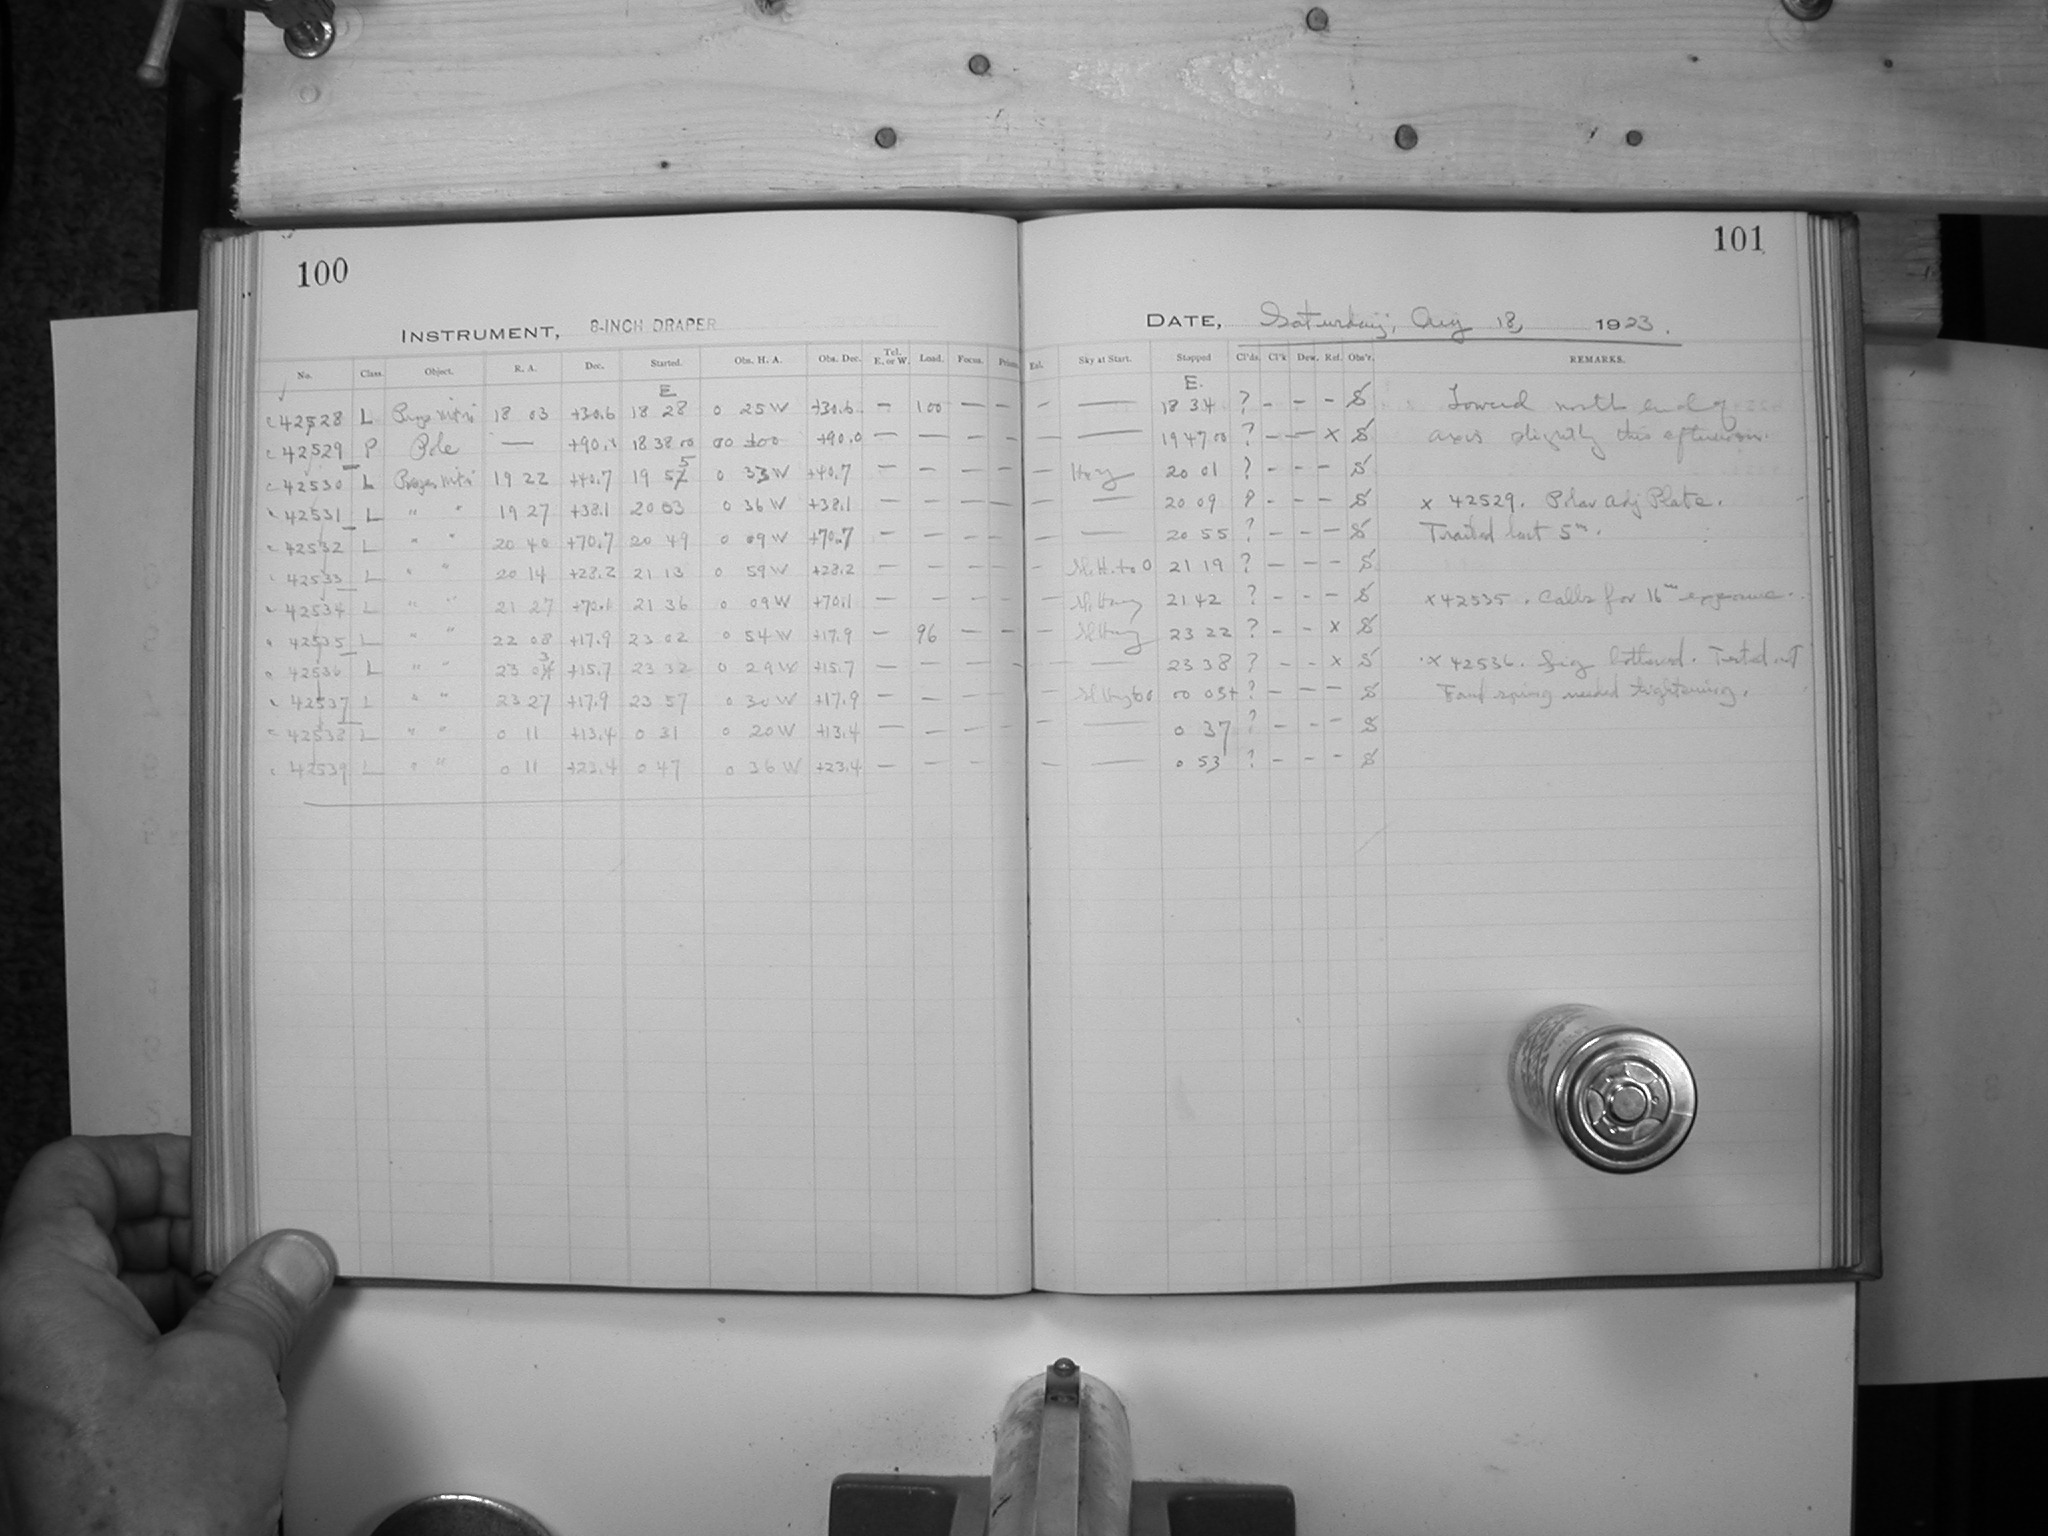 100
101
INSTRUMENT, 8-INCH DRAPER
DATE, Saturday, Aug 18, 1923.
No. Class. Object. R. A. Dec. Started. Obs. H. A. Obs. Dec. Tel. E. or W. Load. Focus. Sky at Start. Stopped Cl'ds. Cl'k Dew. Ref. Obs'r. REMARKS.
E E.
c 42528 L 18 03 +30.6 18 28 0 25 W +30.6 — 100 — — — — 18 34 ? – – – S north end of
c 42529 P Pole — +90.0 18 38 00 00 ±00 +90.0 — — — — — — 19 47 00 ? – – x S axis slightly this afternoon.
c 42530 L 19 22 +40.7 19 55 0 33 W +40.7 — — — — — Hazy 20 01 ? – – – S
42531 L " " 19 27 +38.1 20 03 0 36 W +38.1 — — — — — — 20 09 ? – – – S x 42529. Polar Adj Plate.
42532 L " " 20 40 +70.7 20 49 0 09 W +70.7 — — — — — — 20 55 ? – – – S Trailed last 5m.
42533 L " " 20 14 +28.2 21 13 0 59 W +28.2 — — — — — 21 19 ? – – – S
42534 L " " 21 27 +70.1 21 36 0 09 W +70.1 — — — — — 21 42 ? – – – S x 42535. Calls for 16m exposure.
42535 L " " 22 08 +17.9 23 02 0 54 W +17.9 — 96 — — — 23 22 ? – – x S
42536 L " " 23 03 +15.7 23 32 0 29 W +15.7 — — — — — — 23 38 ? – – x S x 42536.
42537 L " " 23 27 +17.9 23 57 0 30 W +17.9 — — — — — 00 03+ ? – – – S spring needed tightening.
42538 L " " 0 11 +13.4 0 31 0 20 W +13.4 — — — — — — 0 37 ? – – – S
42539 L " " 0 11 +23.4 0 47 0 36 W +23.4 — — — — — — 0 53 ? – – – S